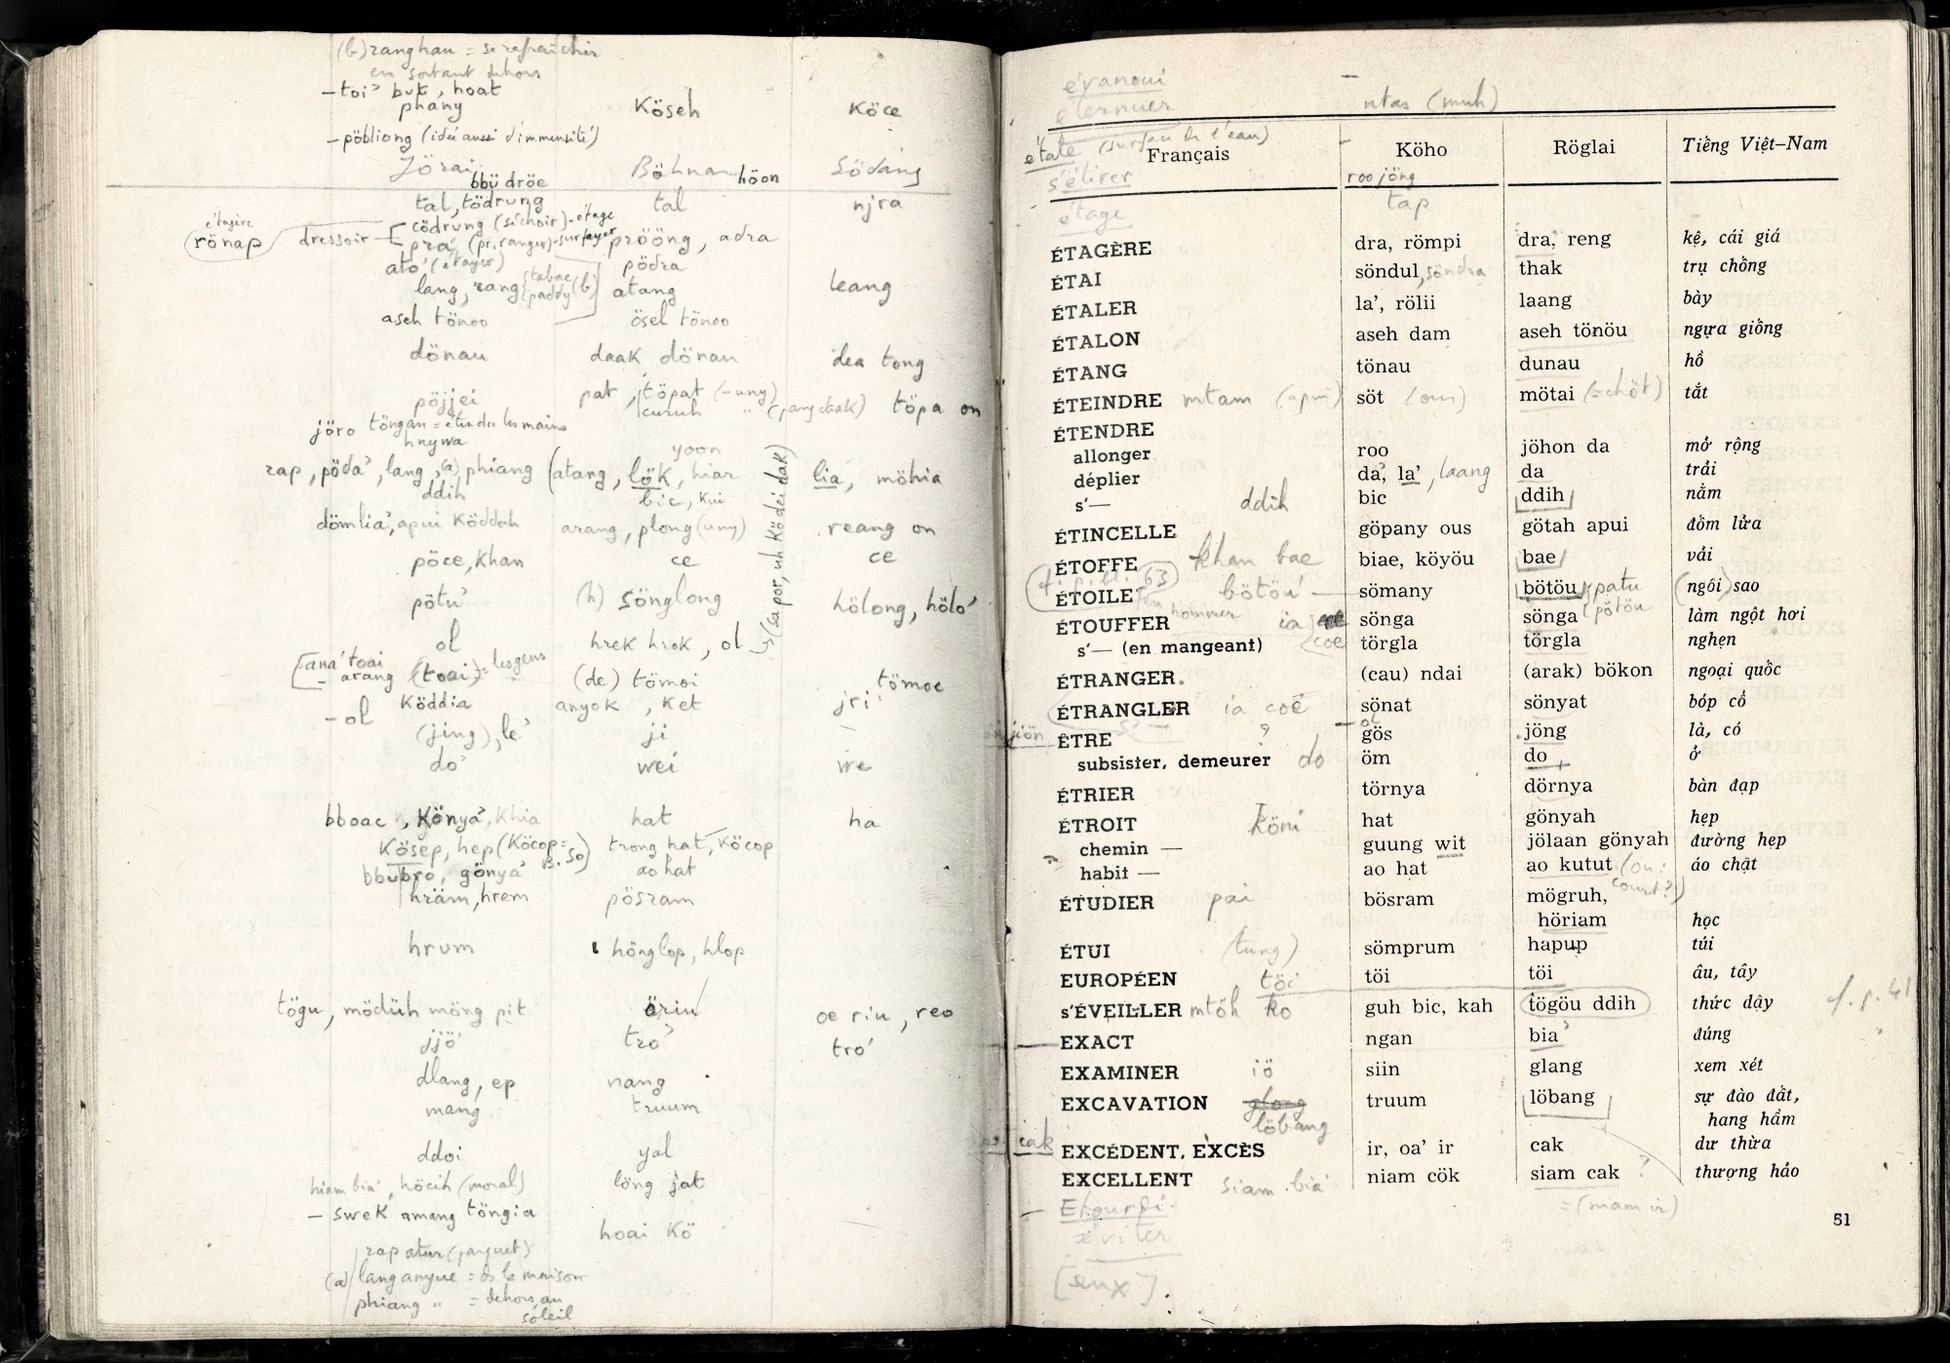 (b) ranghau = se rafraîchir
en sortant dehors
– toi' but, hoat
phang
– pöbliong (idée aussi d'immensité)
Köseh Köce
Jörai Böhnar Södang
bbü dröe höon
tal, tödrung tal njra
étagère
rönap dressoir cödrung (séchoir) - étage
pra (pr. ranger) - surfayer prööng, adra
ato' (étayer) pödra
lang, rang (tabac paddy) (b) atang leang
aseh tönoo öseh tönoo
dönau daak dönau dea tong
pöjjei pat, töpat (–uny)
curuh " (pang daak) töpa on
jöro töngan = étendre les mains
hnywa
yoon
rap, pöda', lang, (a) phiang (atang, lök, hiar lia, möhia
ddih bic, kui
dömlia, apui Köddah arang, plong (uny) reang on
pöce, khan ce ce
(sa por, uh Ködei dak)
pötu' (h) sönglong hölong, hölo'
ol hrek hrok, ol
ana' toai
arang (toai) = les gens (de) tömoi tömoe
– ol Köddia anyok, ket jri
(jing), le' ji
do' wei we
bboac, Könya', khia hat ha
Kösep, hep (Köcop = B. So) trong hat, Köcop
bbubro, gönya' ao hat
hräm, hrem pösram
hrum hönglop, hlop
tögu, mödüh möng pit öriu oe riu, reo
jjö' tro' tro'
dlang, ep nang
mang truum
ddoi yal
hiam bia', höcih (moral) löng jat
– swek amang töngia
hoai Kö
rap atur (parquet)
(a) lang anyue = ds la maison
phiang " = dehors, au
soleil
évanoui
éternuer ntas (muh)
étale (surface de l'eau)
Français Köho Röglai Tiếng Việt–Nam
s'étirer roo jöng
étage tap
ÉTAGÈRE dra, römpi dra, reng kệ, cái giá
ÉTAI söndul, söndra thak trụ chống
ÉTALER la', rölii laang bày
ÉTALON aseh dam aseh tönöu ngựa giống
ÉTANG tönau dunau hồ
ÉTEINDRE mtam (apui) söt (ous) mötai (= chöt) tắt
ÉTENDRE
allonger roo jöhon da mở rộng
déplier da', la', laang da trải
s'— ddih bic ddih nằm
ÉTINCELLE göpany ous götah apui đốm lửa
ÉTOFFE khan bae biae, köyöu bae vải
ÉTOILE bötöu sömany bötöu, patu (ngôi) sao
pötöu
ÉTOUFFER ia coe sönga sönga làm ngột hơi
s'— (en mangeant) törgla törgla nghẹn
ÉTRANGER (cau) ndai (arak) bökon ngoại quốc
ÉTRANGLER ia coe sönat sönyat bóp cổ
ÊTRE gös jöng là, có
subsister, demeurer do öm do ở
ÉTRIER törnya dörnya bàn đạp
ÉTROIT Köni hat gönyah hẹp
chemin — guung wit jölaan gönyah đường hẹp
habit — ao hat ao kutut (ou: court?) áo chật
ÉTUDIER pai bösram mögruh,
höriam học
ÉTUI (tung) sömprum hapup túi
EUROPÉEN töi töi töi âu, tây
s'ÉVEILLER mtöh ko guh bic, kah tögöu ddih thức dậy
EXACT ngan bia' đúng
EXAMINER iö siin glang xem xét
EXCAVATION glong löbang truum löbang sự đào đất,
hang hầm
cak EXCÉDENT, EXCÈS ir, oa' ir cak dư thừa
EXCELLENT siam bia' niam cök siam cak ? thượng hảo
– Etourdi = (niam ir)
51
éviter
[eux]